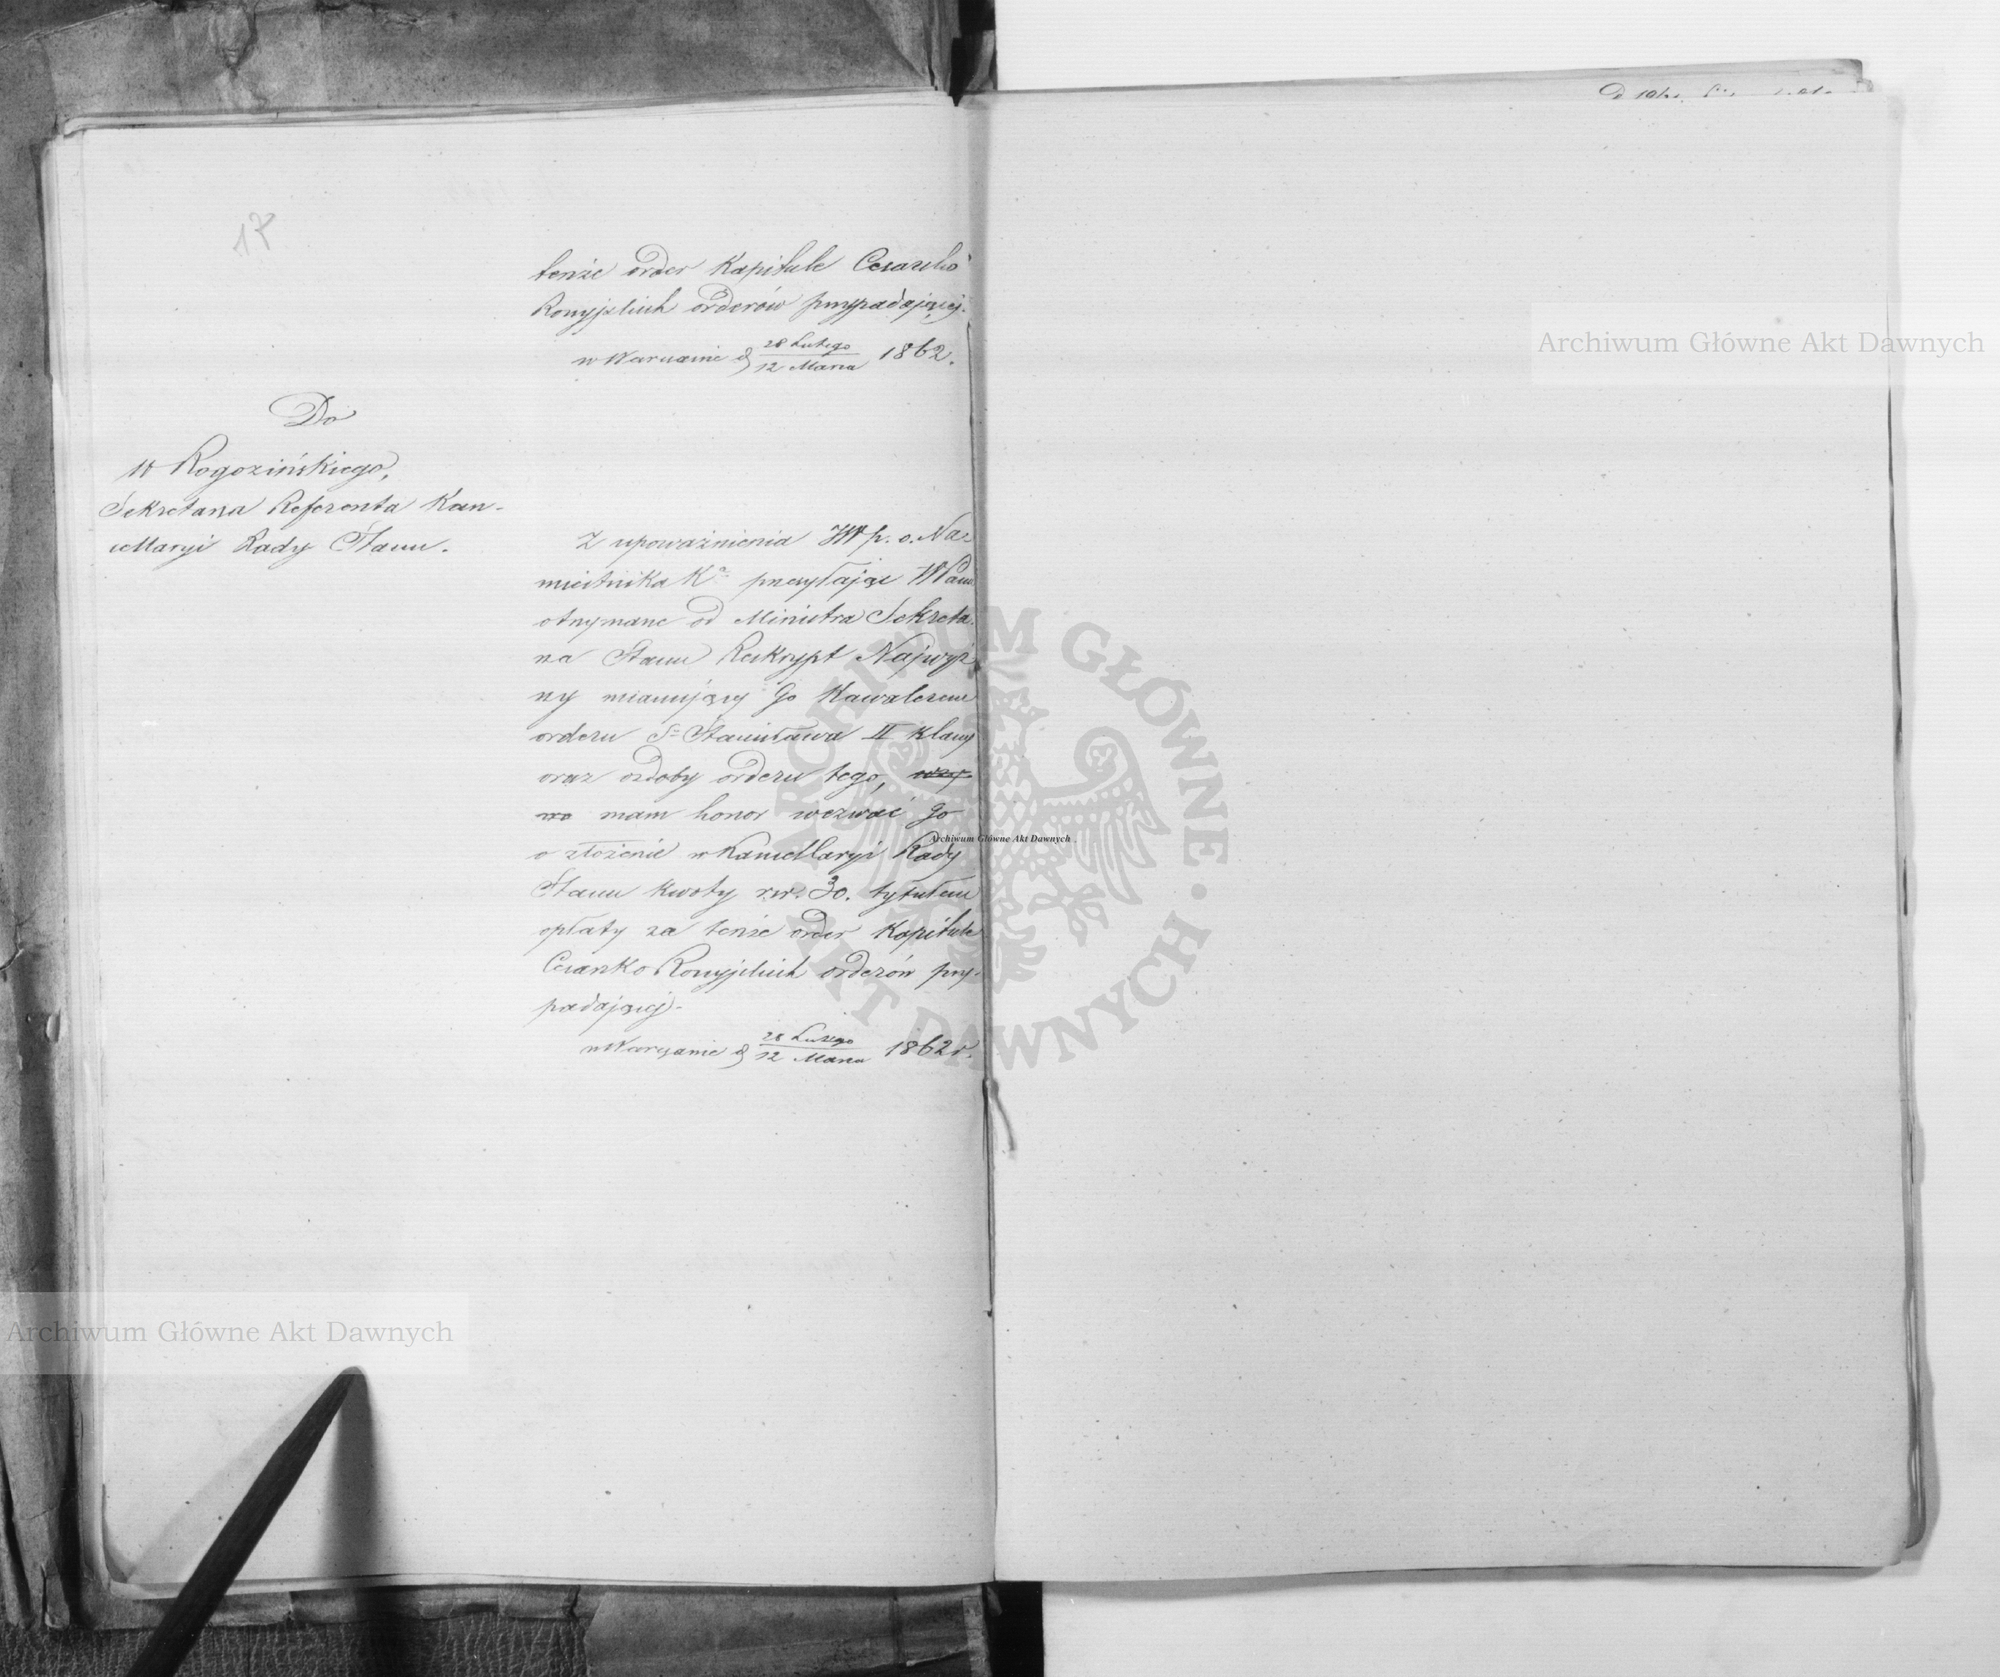 17
tenże order Kapitule Cesarsko
Rossyjskich orderów przypadającej.
w Warszawie d 28 Lutego / 12 Marca 1862.
Do
W Rogozińskiego,
Sekretarza Referenta Kan-
cellaryi Rady Stanu.
Z upoważnienia JW p. o. Na-
miestnika K. przesyłając WPanu
otrzymane od Ministra Sekreta-
rza Stanu Reskrypt Najwyż
ny mianujący Go Kawalerem
orderu S. Stanisława II klassy
oraz ozdoby orderu tego,
mam honor wezwać Go
o złożenie w Kancellaryi Rady
Stanu kwoty rsr. 30. tytułem
opłaty za tenże order Kapitule
Cesarsko Rossyjskich orderów przy-
padającej.
w Warszawie d 28 Lutego / 12 Marca 1862 r.
Archiwum Główne Akt Dawnych
Archiwum Główne Akt Dawnych
Archiwum Główne Akt Dawnych
ARCHIWUM GŁÓWNE AKT DAWNYCH